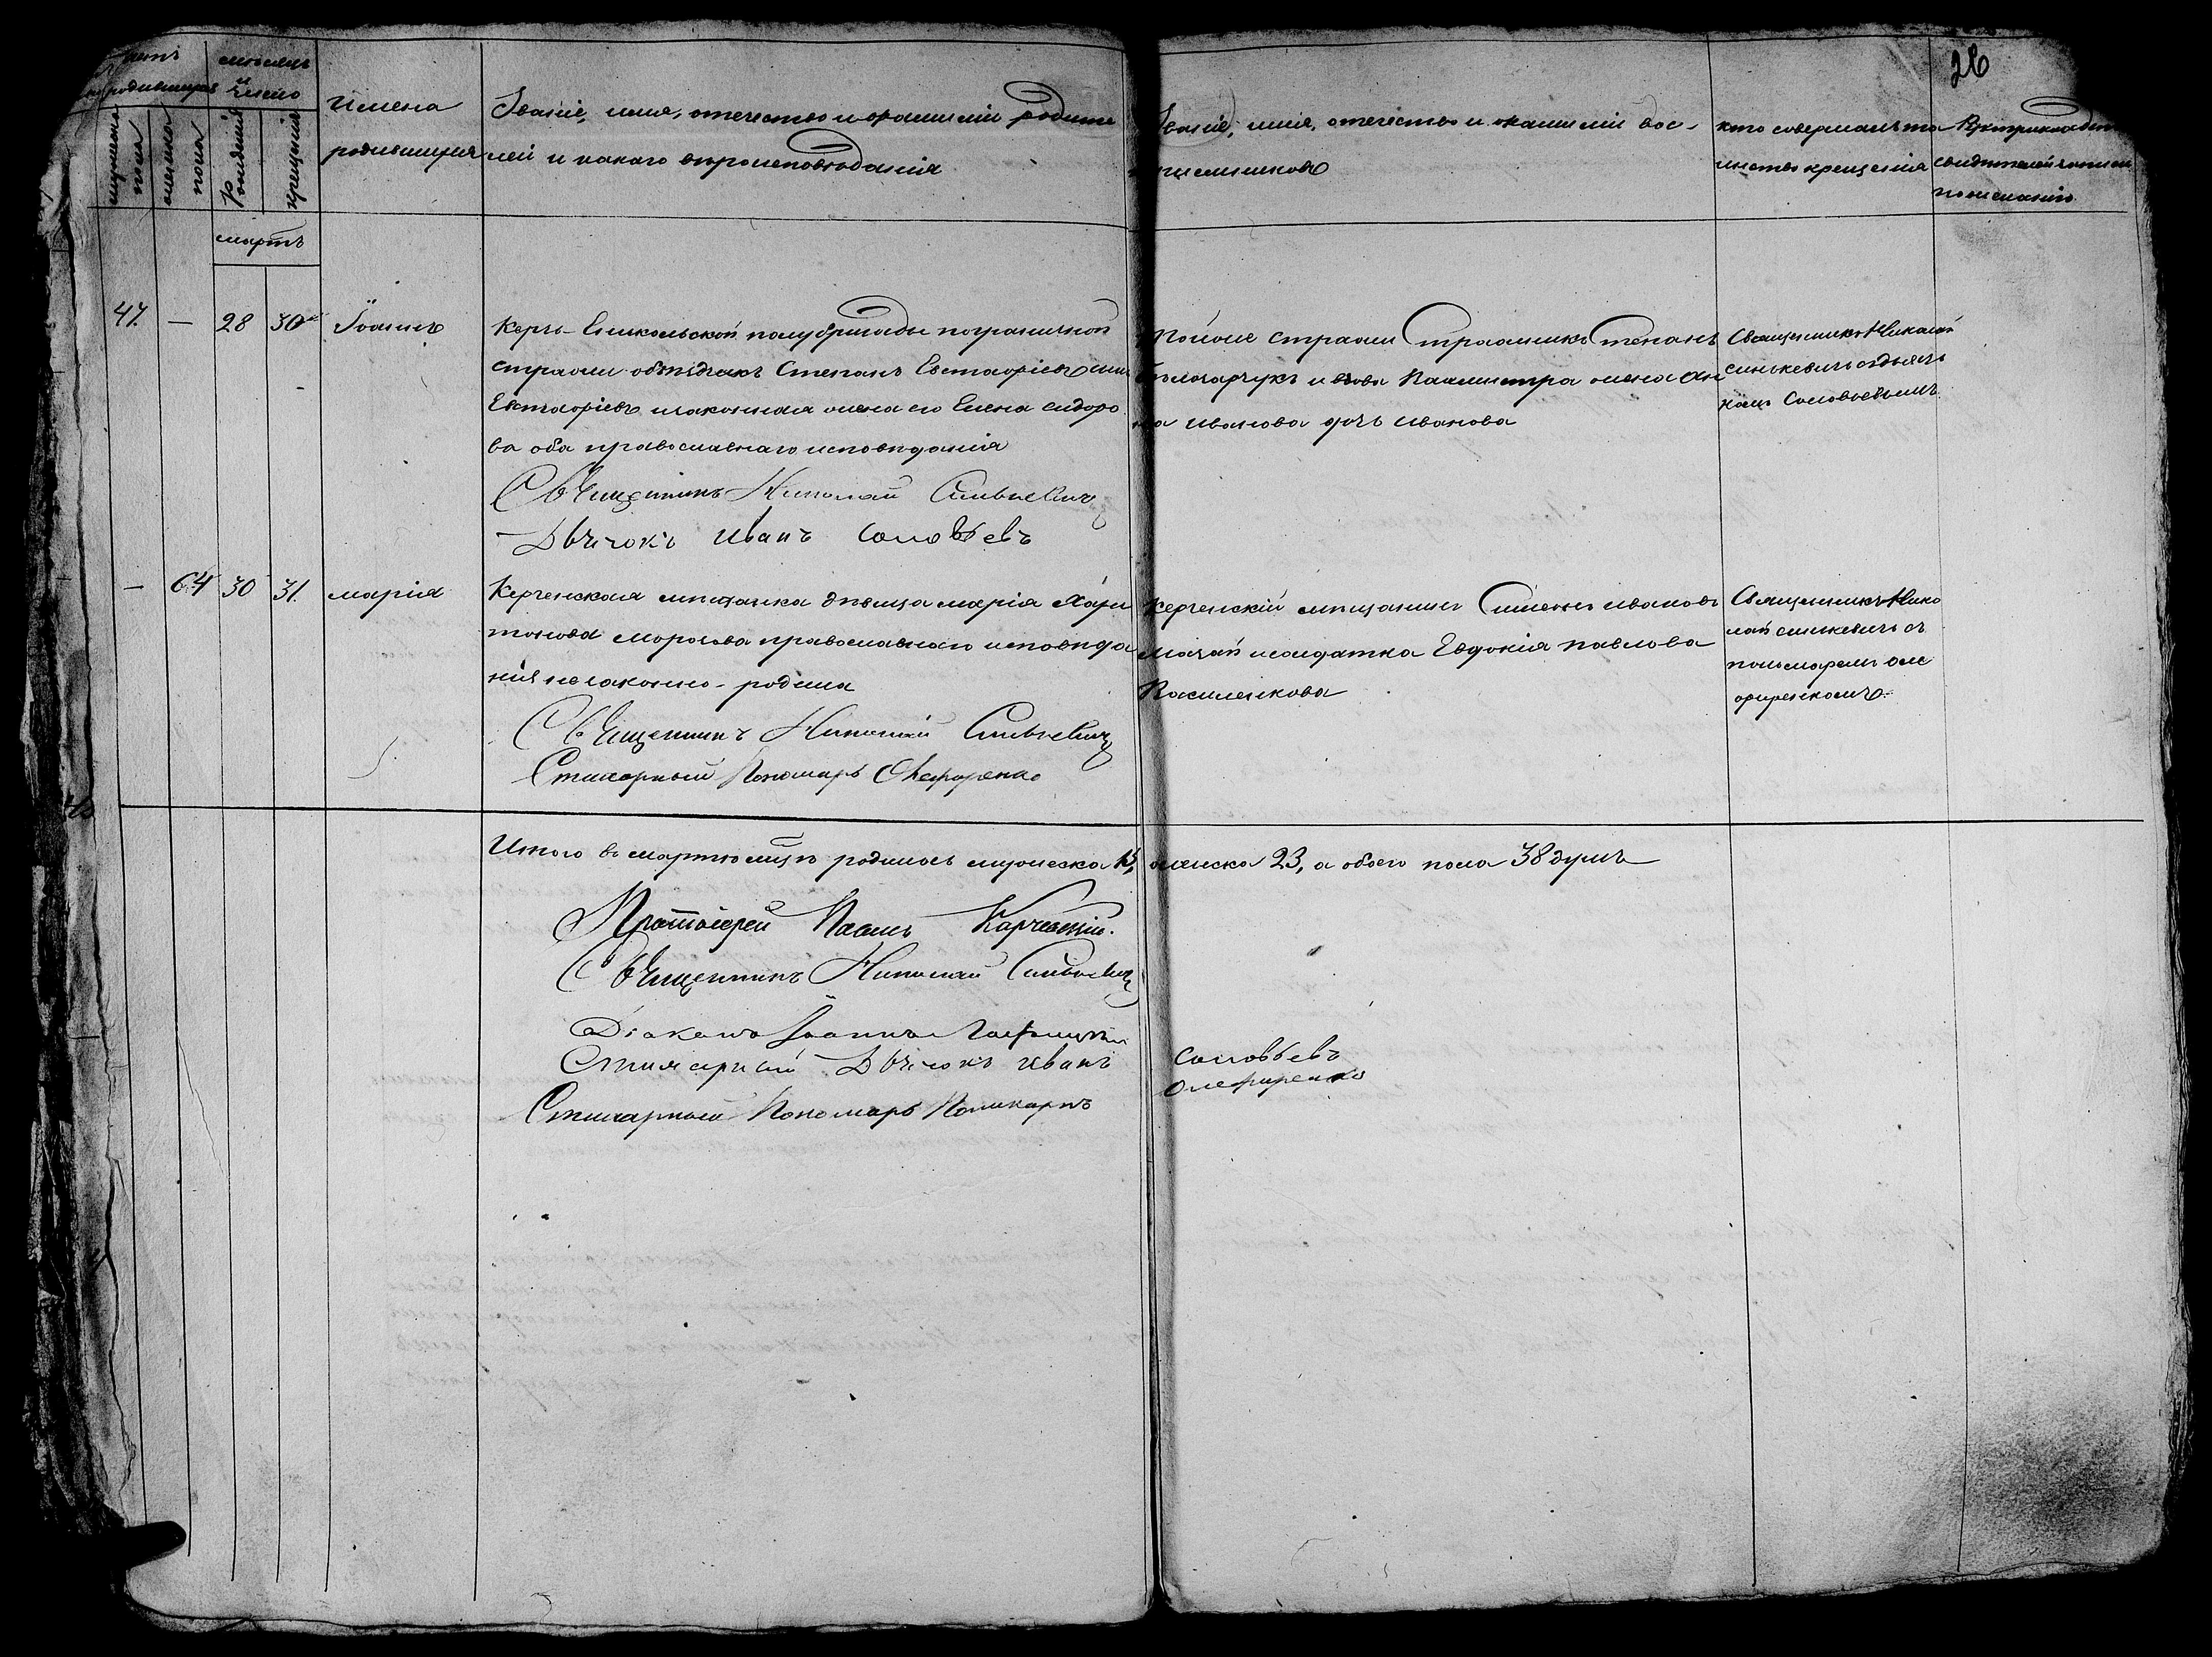 26
счетъ родившихся
мѣсяцъ и число
мужеска пола
женска пола
рожденія
крещенія
Имена
родившихся
Званіе, имя, отечество и фамиліи родите
лей и какаго вѣроисповѣданія
Званіе, имя, отечество и фамиліи вос-
пріемниковъ
кто совершалъ та
инство крещенія
Рукоприкладство
свидѣтелей записи
по желанію
мартъ
47. — 28 30 Іоаннъ
Керчъ-Еникольской полубригады пограничной
стражи объѣздчикъ Степанъ Евстафіевъ сынъ
Евстафіевъ и законная жена его Елена сидоро
ва оба православнаго исповѣданія
Священникъ Николай Синькевичъ
Дьячокъ Иванъ Соловьевъ
тойже стражи стражникъ Степанъ
и вдова Вахмистра жена Ан
на Иванова дочь Иванова
Священникъ Николай
синькевичъ съ дьяч
комъ Соловьевымъ
— 64 30 31. марія
Керченская мѣщанка дѣвица марія Хари
тонова Морозова православнаго исповѣда
нія незаконно-родила
Священникъ Николай Синькевичъ
Стихарный Пономарь Олефиренко
Керченскій мѣщанинъ Симеонъ ивановъ
и солдатка Евдокія павлова
Василенкова
Священникъ Нико
лай синькевичъ съ
пономаремъ оле
фиренкомъ
Итого въ мартѣ мцѣ родилось мужеска 15, женска 23, а обоего пола 38 душъ
Протоіерей Павелъ Карчевскій.
Священникъ Николай Синькевичъ
Діаконъ Іоаннъ
Стихарный Дьячокъ Иванъ Соловьевъ
Стихарный Пономарь Поликарпъ Олефиренко